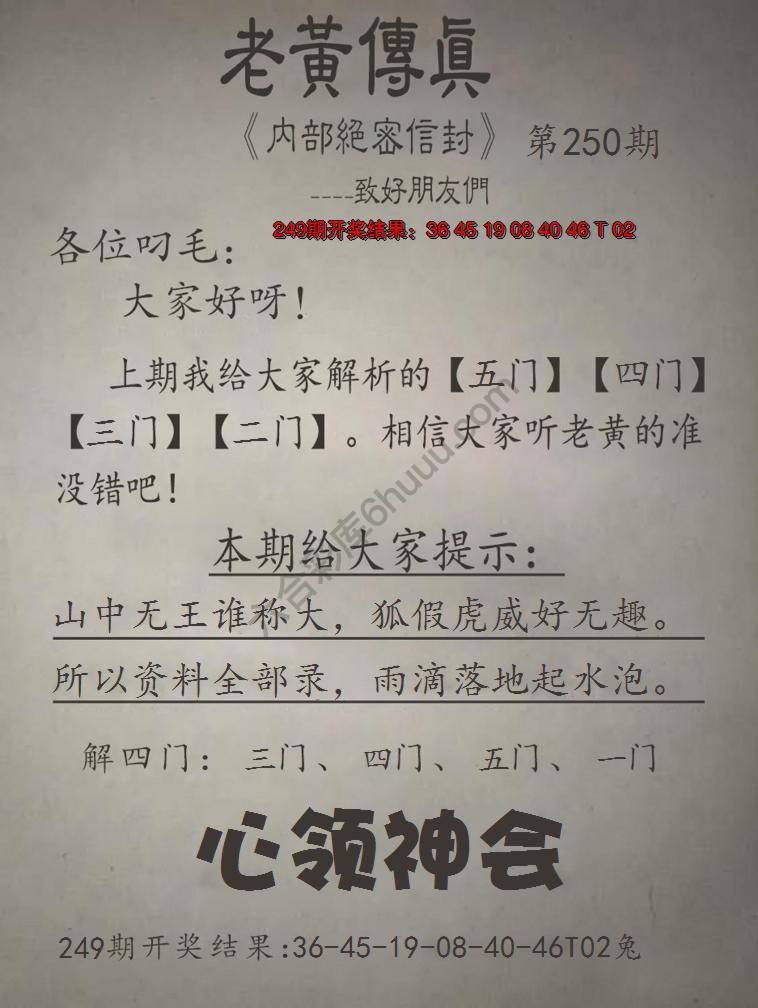 老黃傳眞
《内部絕密信封》 第250期
----致好朋友們
249期开奖结果：36 45 19 08 40 46 T 02
各位叼毛：
大家好呀！
上期我给大家解析的【五门】【四门】
【三门】【二门】。相信大家听老黄的准
没错吧！
本期给大家提示：
山中无王谁称大，狐假虎威好无趣。
所以资料全部录，雨滴落地起水泡。
解四门：三门、四门、五门、一门
心领神会
249期开奖结果:36-45-19-08-40-46T02兔
六合彩库6huuu.com